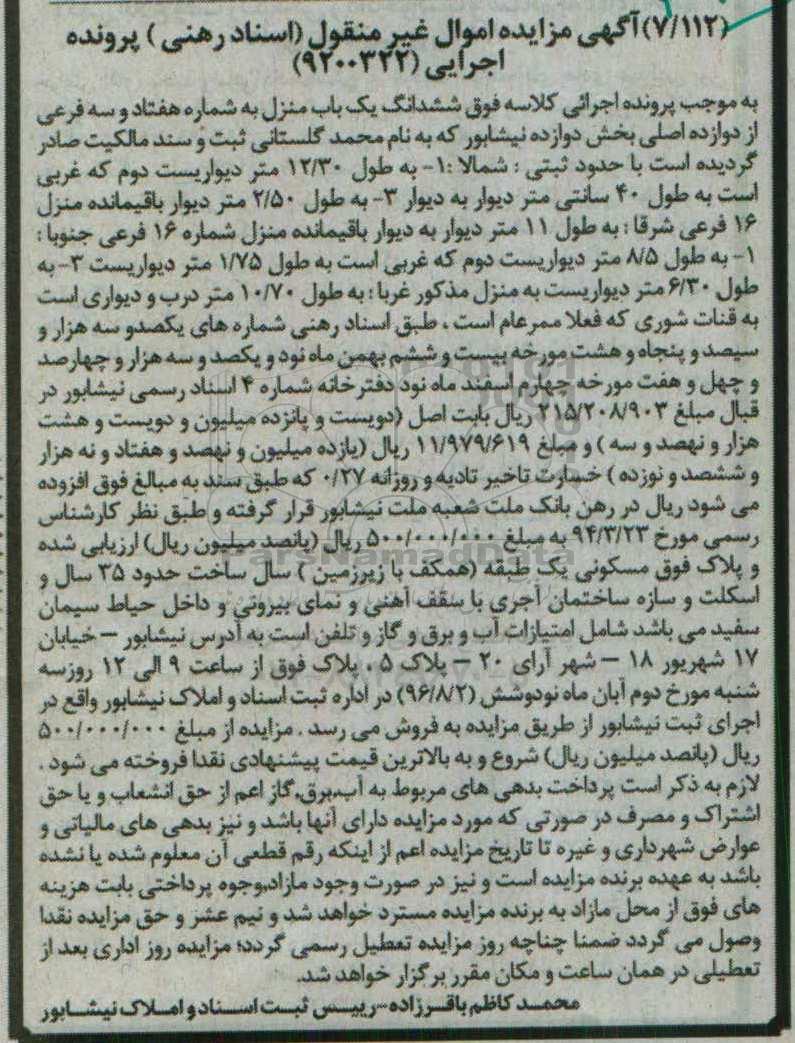 (۷/۱۱۲) آگهی مزایده اموال غیر منقول (اسناد رهنی) پرونده
اجرایی (۹۲۰۰۳۲۲)
به موجب پرونده اجرائی کلاسه فوق ششدانگ یک باب منزل به شماره هفتاد و سه فرعی
از دوازده اصلی بخش دوازده نیشابور که به نام محمد گلستانی ثبت و سند مالکیت صادر
گردیده است با حدود ثبتی : شمالا :۱- به طول ۱۲/۳۰ متر دیواریست دوم که غربی
است به طول ۴۰ سانتی متر دیوار به دیوار ۳- به طول ۲/۵۰ متر دیوار باقیمانده منزل
۱۶ فرعی شرقا : به طول ۱۱ متر دیوار به دیوار باقیمانده منزل شماره ۱۶ فرعی جنوبا :
۱- به طول ۸/۵ متر دیواریست دوم که غربی است به طول ۱/۷۵ متر دیواریست ۳- به
طول ۶/۳۰ متر دیواریست به منزل مذکور غربا : به طول ۱۰/۷۰ متر درب و دیواری است
به قنات شوری که فعلا ممرعام است ، طبق اسناد رهنی شماره های یکصدو سه هزار و
سیصد و پنجاه و هشت مورخه بیست و ششم بهمن ماه نود و یکصد و سه هزار و چهارصد
و چهل و هفت مورخه چهارم اسفند ماه نود دفترخانه شماره ۴ اسناد رسمی نیشابور در
قبال مبلغ ۲۱۵/۲۰۸/۹۰۳ ریال بابت اصل (دویست و پانزده میلیون و دویست و هشت
هزار و نهصد و سه ) و مبلغ ۱۱/۹۷۹/۶۱۹ ریال (یازده میلیون و نهصد و هفتاد و نه هزار
و ششصد و نوزده ) خسارت تاخیر تادیه و روزانه ۰/۲۷ که طبق سند به مبالغ فوق افزوده
می شود ریال در رهن بانک ملت شعبه ملت نیشابور قرار گرفته و طبق نظر کارشناس
رسمی مورخ ۹۴/۳/۲۳ به مبلغ ۵۰۰/۰۰۰/۰۰۰ ریال (پانصد میلیون ریال) ارزیابی شده
ParsNamadData
و پلاک فوق مسکونی یک طبقه (همکف با زیرزمین ) سال ساخت حدود ۳۵ سال و
اسکلت و سازه ساختمان آجری با سقف آهنی و نمای بیرونی و داخل حیاط سیمان
سفید می باشد شامل امتیازات آب و برق و گاز و تلفن است به آدرس نیشابور – خیابان
۱۷ شهریور ۱۸ – شهر آرای ۲۰ – پلاک ۵ ، پلاک فوق از ساعت ۹ الی ۱۲ روز سه
شنبه مورخ دوم آبان ماه نودوشش (۹۶/۸/۲) در اداره ثبت اسناد و املاک نیشابور واقع در
اجرای ثبت نیشابور از طریق مزایده به فروش می رسد . مزایده از مبلغ ۵۰۰/۰۰۰/۰۰۰
ریال (پانصد میلیون ریال) شروع و به بالاترین قیمت پیشنهادی نقدا فروخته می شود .
لازم به ذکر است پرداخت بدهی های مربوط به آب،برق،گاز اعم از حق انشعاب و یا حق
اشتراک و مصرف در صورتی که مورد مزایده دارای آنها باشد و نیز بدهی های مالیاتی و
عوارض شهرداری و غیره تا تاریخ مزایده اعم از اینکه رقم قطعی آن معلوم شده یا نشده
باشد به عهده برنده مزایده است و نیز در صورت وجود مازاد،وجوه پرداختی بابت هزینه
های فوق از محل مازاد به برنده مزایده مسترد خواهد شد و نیم عشر و حق مزایده نقدا
وصول می گردد ضمنا چناچه روز مزایده تعطیل رسمی گردد؛ مزایده روز اداری بعد از
تعطیلی در همان ساعت و مکان مقرر برگزار خواهد شد.
محمد کاظم باقرزاده-رییس ثبت اسناد و املاک نیشابور